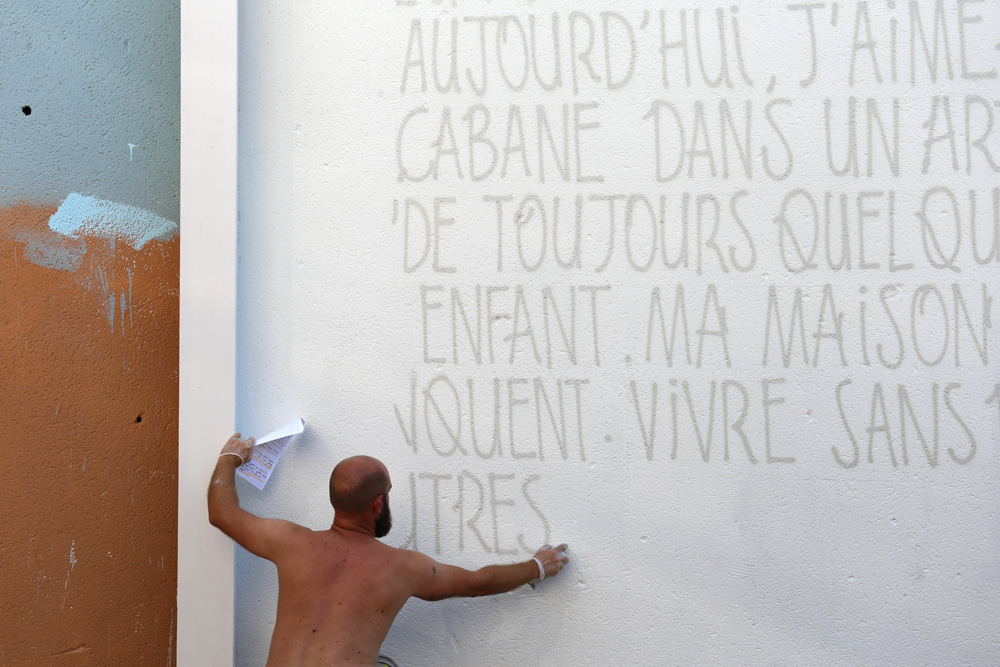 AUJOURD'HUI, J'AIME
CABANE DANS UN AR
DE TOUJOURS QUELQU
ENFANT. MA MAISON
QUENT. VIVRE SANS
UTRES